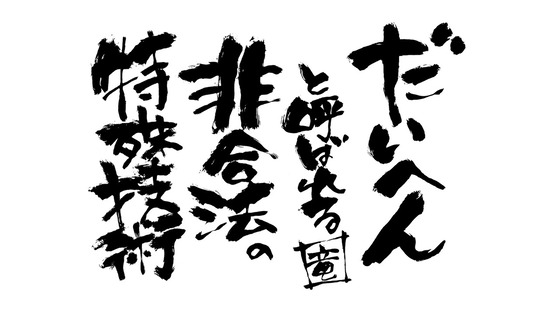 だいへん
と呼ばれる
非合法の
特殊技術
竜